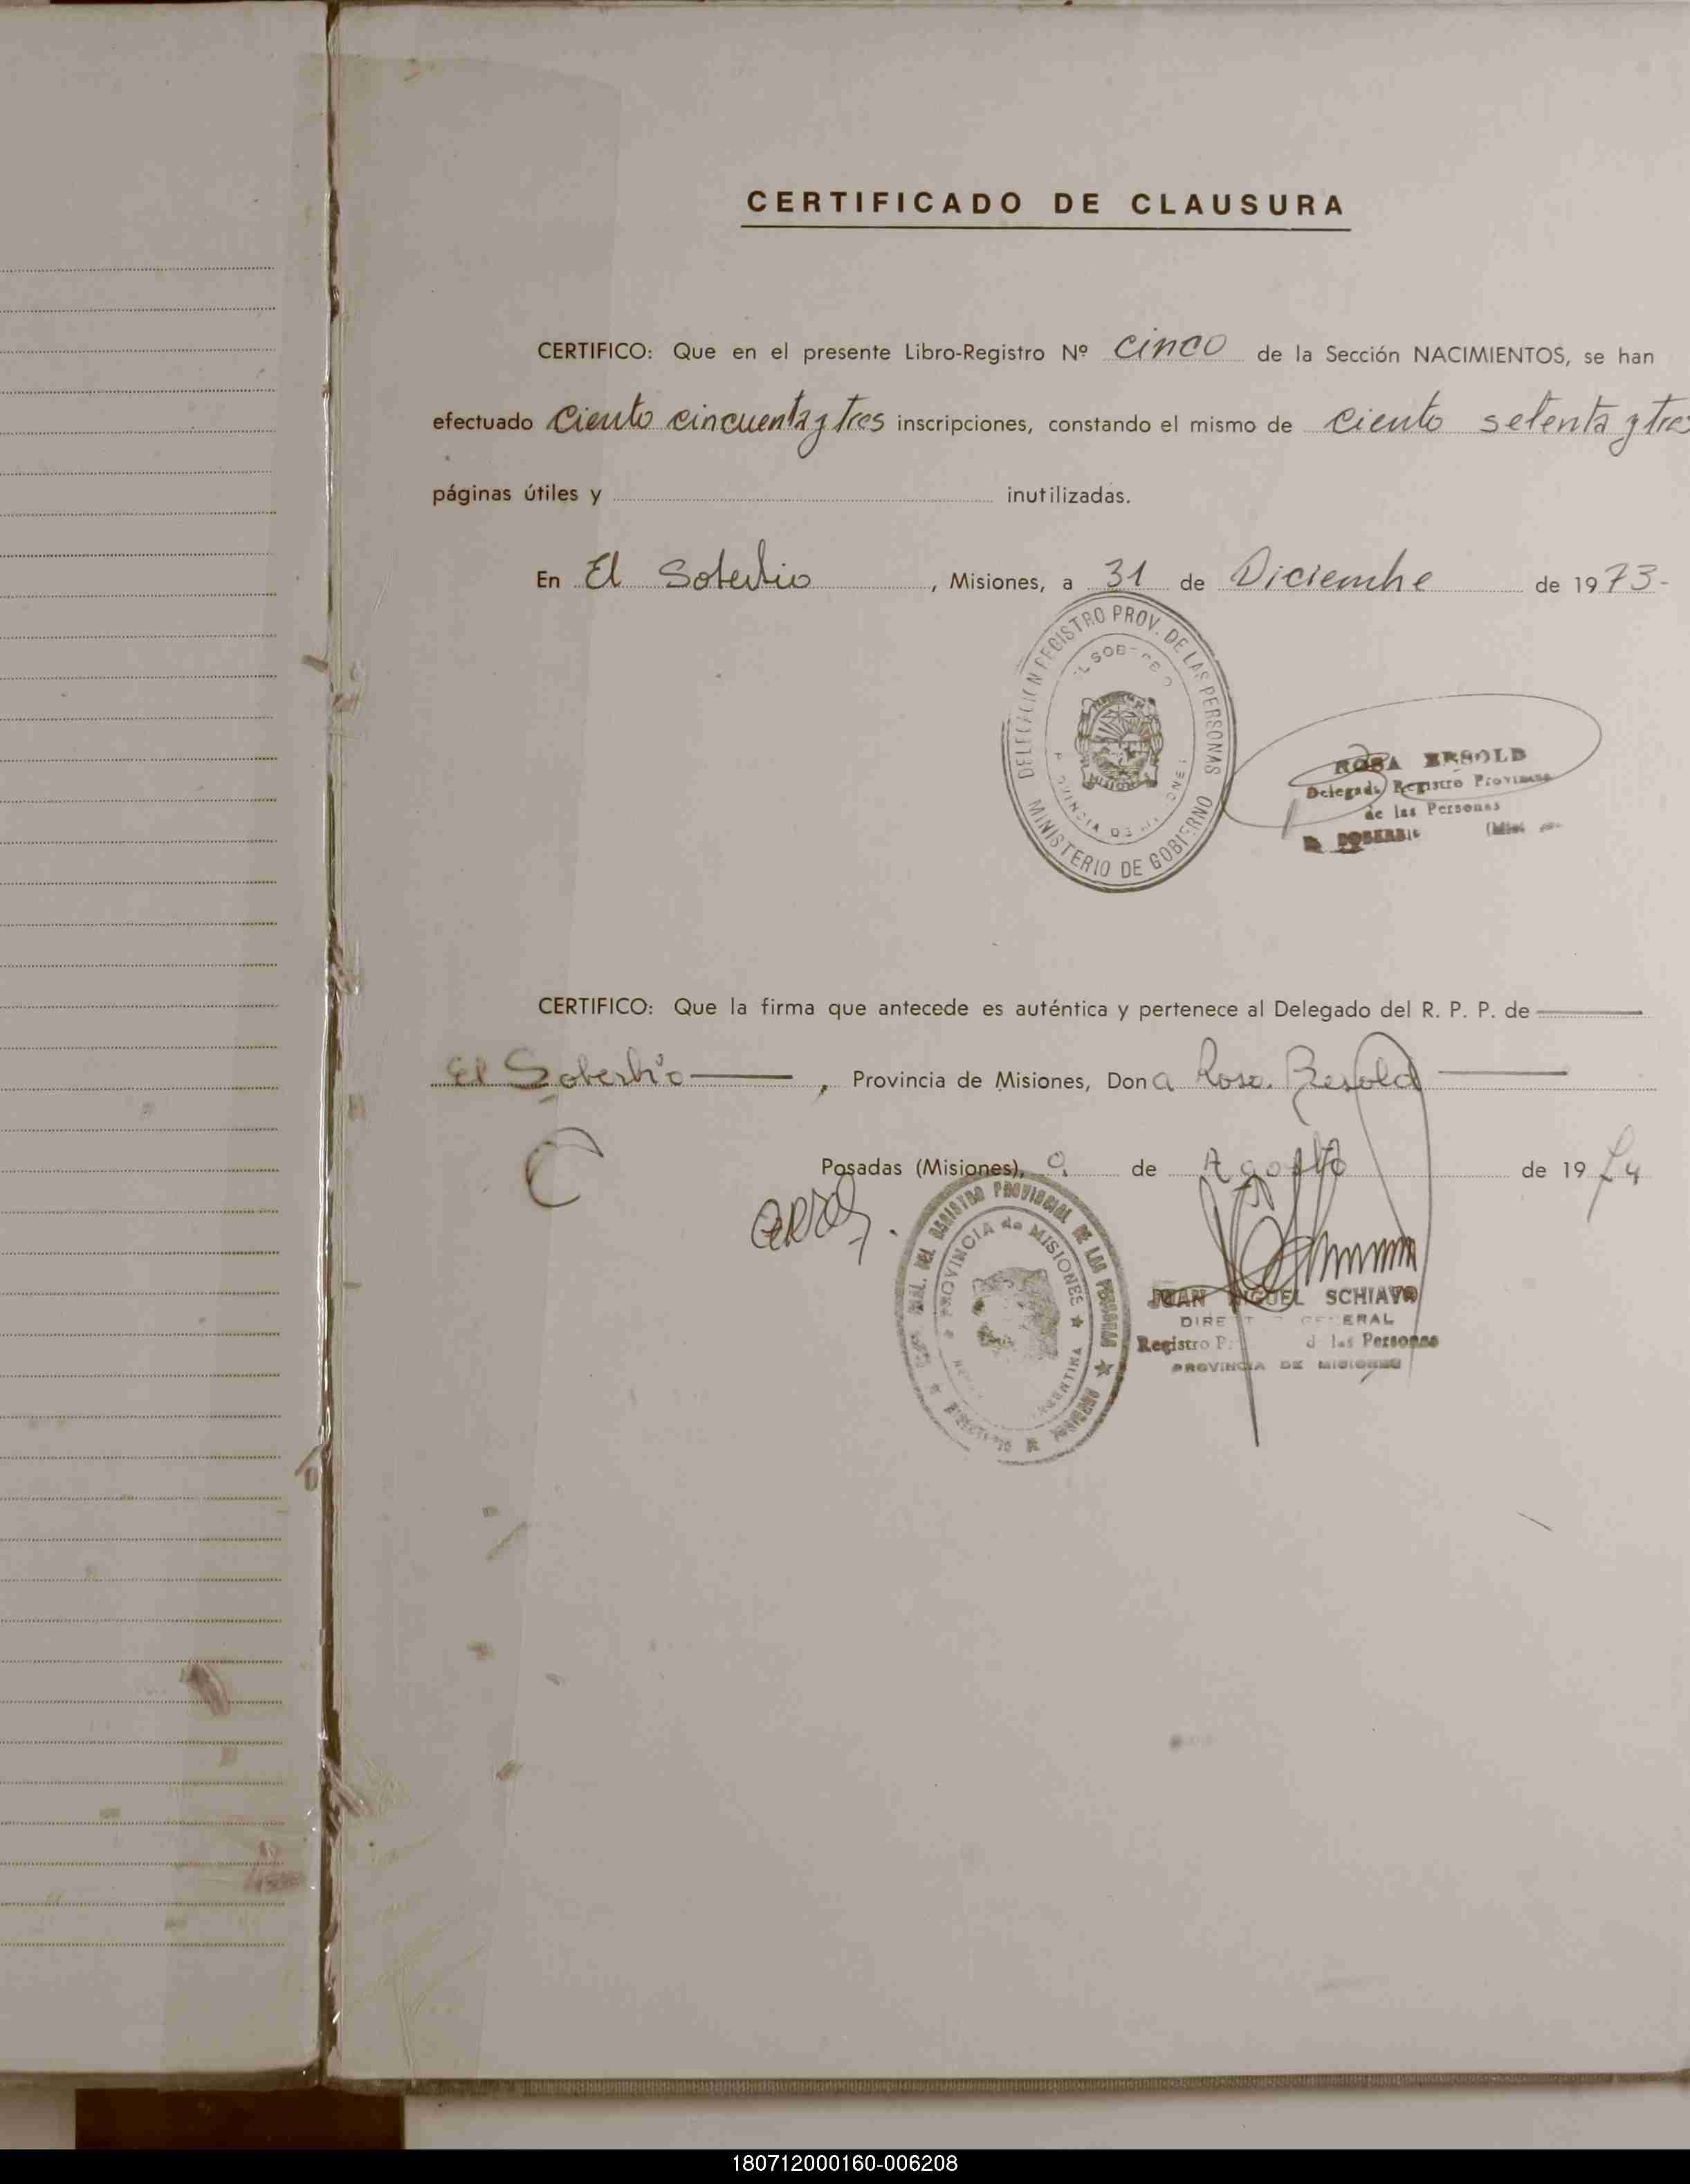 CERTIFICADO DE CLAUSURA
CERTIFICO: Que en el presente Libro-Registro Nº cinco de la Sección NACIMIENTOS, se han
efectuado Ciento cincuenta y tres inscripciones, constando el mismo de ciento setenta y tres
páginas útiles y inutilizadas.
En El Soberbio, Misiones, a 31 de Diciembre de 1973-
DELEGACION REGISTRO PROV. DE LAS PERSONAS
EL SOBERBIO
PROVINCIA DE MISIONES
MINISTERIO DE GOBIERNO
ROSA BESOLD
Delegada Registro Provincial
de las Personas
EL SOBERBIO (Misiones)
CERTIFICO: Que la firma que antecede es auténtica y pertenece al Delegado del R. P. P. de
El Soberbio, Provincia de Misiones, Dona Rosa Besold
Posadas (Misiones), de Agosto de 1974
DEL REGISTRO PROVINCIAL DE LAS PERSONAS
PROVINCIA de MISIONES
ARGENTINA
JUAN MIGUEL SCHIAVO
DIRECTOR GENERAL
Registro Provincial de las Personas
PROVINCIA DE MISIONES
180712000160-006208